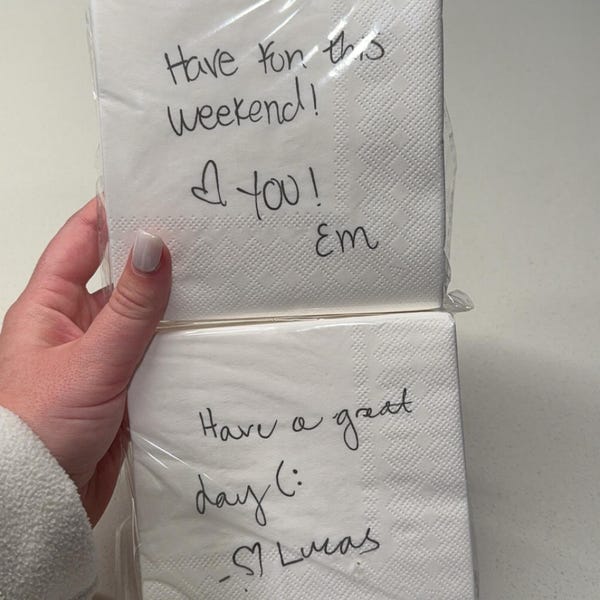 Have fun this
weekend!
♡ YOU!
Em
Have a great
day (:
-♡ Lucas